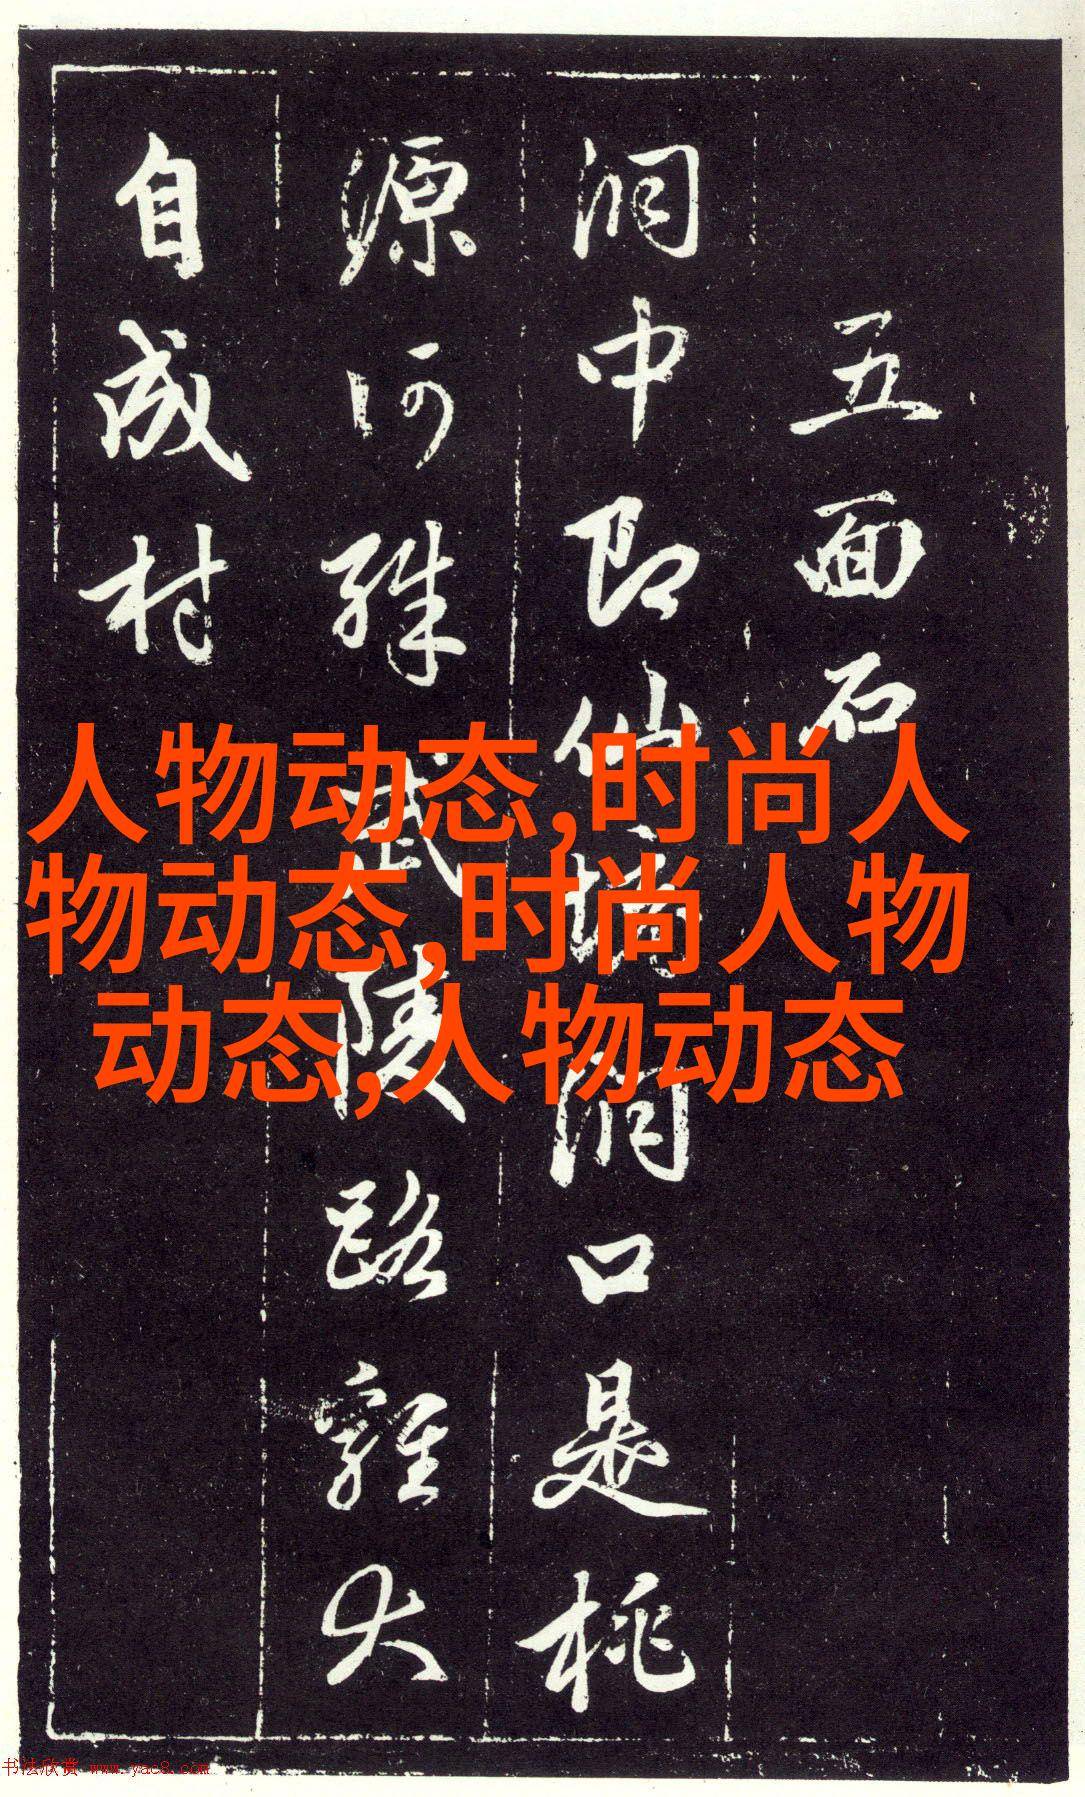 五面石
洞中即仙境洞口是桃
源何殊武陵路雞犬
自成村
人物动态,时尚人
物动态,时尚人物
动态,人物动态
书法欣赏 www.yac8.com